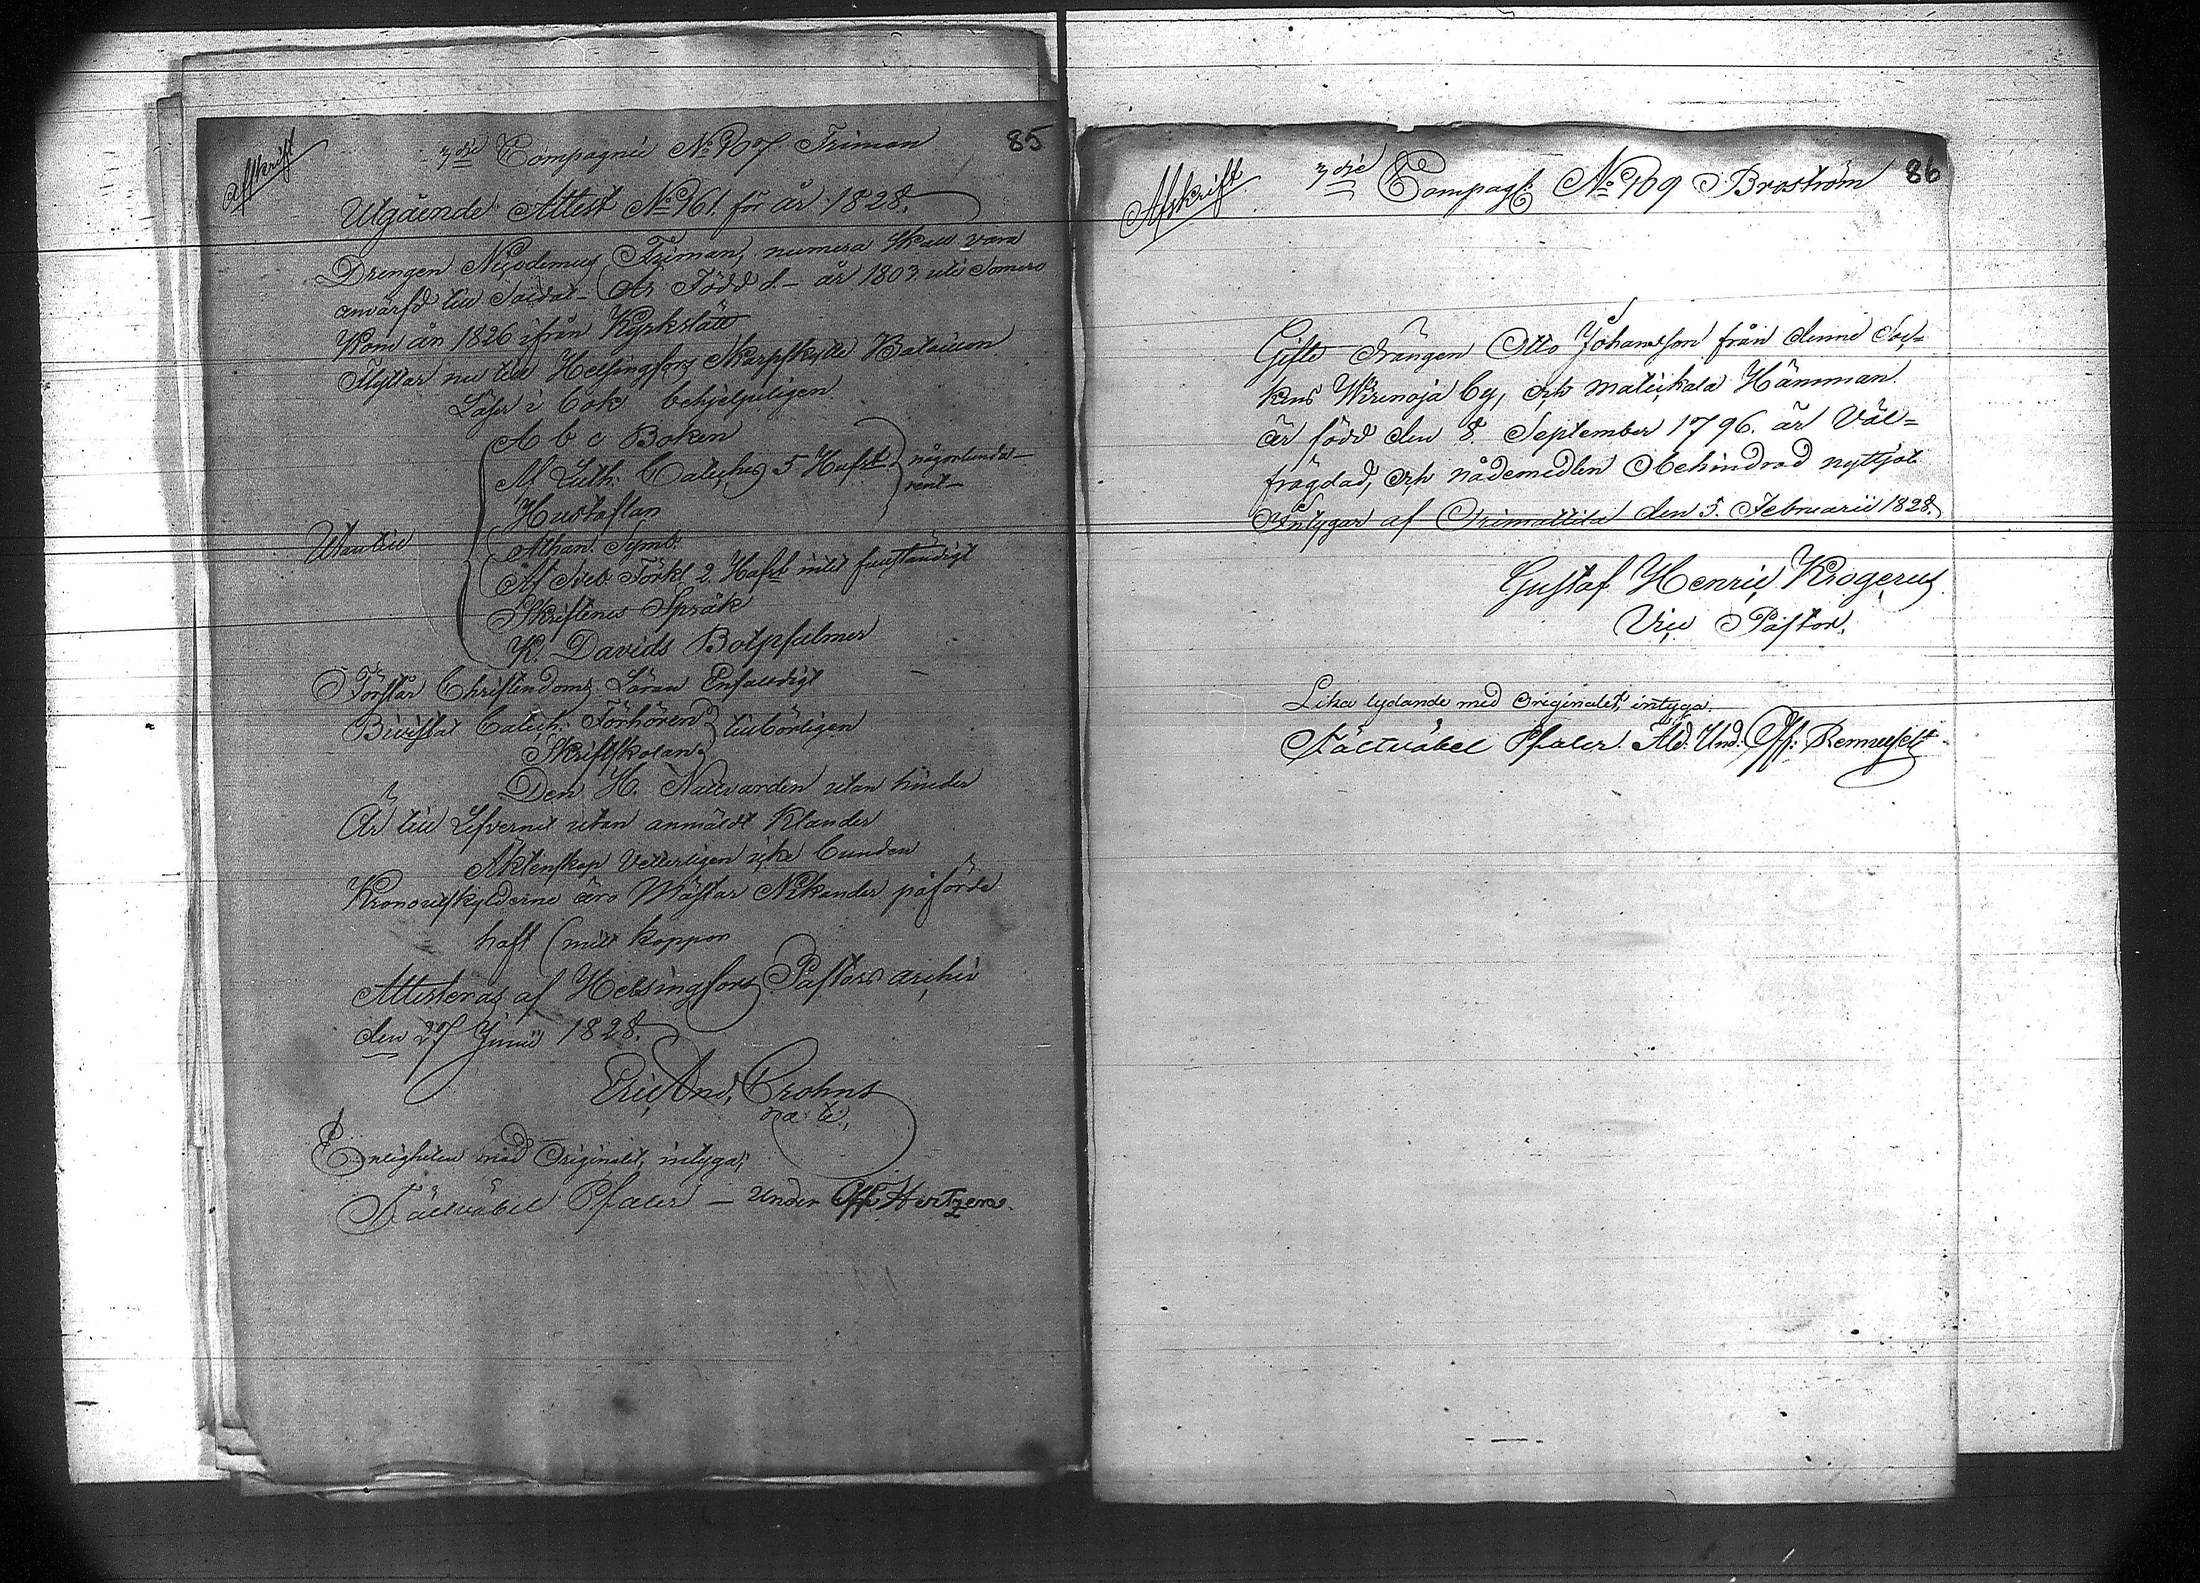 Afskrift
3dje Compagnie No 107 Friman
85
Utgående Attest No 161. för år 1828.
Drengen Nicodemus Friman, numera skall vara
anvärfd till Soldat – Är Född d – år 1803 uti Somero
Kom år 1826 ifrån Kyrkslätt
flyttar nu till Helsingfors Skarpskytte Bataillon
Läser i bok behjelpeligen
A b c Boken
M Luth. Catechs 5 Hufst. någorlunda
rent
Hustaflan
Utantill
Athan. Symb.
Af Sveb Förkl 2 Hufst intet fullständigt
Skriftenes Språk
K. Davids Botpsalmer
Förstår Christendoms Läran Enfaldigt
Bivistat Catech. Förhören tillbörligen
Skriftskolan
Den H. Nattvarden utan hinder
Är till Lefvernet utan anmäldt Klander
Äktenskap Vetterligen icke bunden
Kronoutskylderne äro Mästar Nikander påförde
haft koppor
Attesteras af Helsingfors Pastors archiv
den 27 Junii 1828.
Eric And. Crohns
Enligheten med Originalet, intyga;
Fältväbel Pfaler – Under Off. Hertzen.
Afskrift
3dje Compagt. No 109 Broström
86
Gifte Drängen Otto Johansson från denne Soc=
kens Wirenoja by, och Mattikala Hemman.
är född den 8. September 1796. är Väl=
frägdad, och nådemedlen obehindrad nyttjat
Intygar af Orimattila den 5. Februarii 1828.
Gustaf Henric Krogerus
Vice Pastor.
Lika lydande med Originalet, intyga.
Fältväbel Pfaler. Äld. Und. Off: